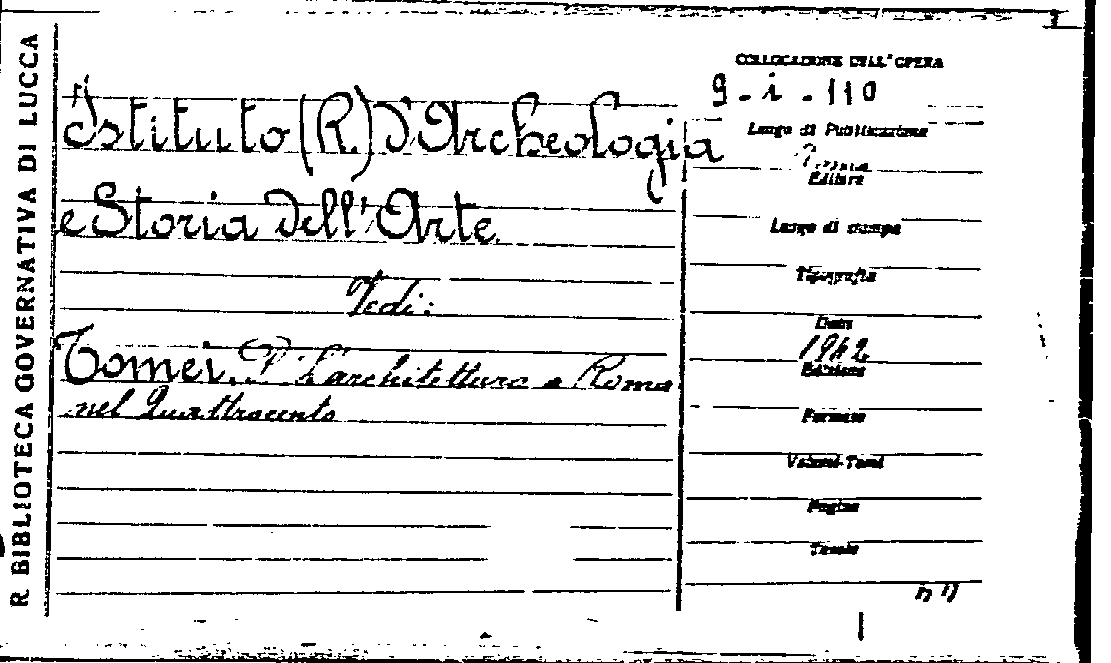 R BIBLIOTECA GOVERNATIVA DI LUCCA
Istituto (R.) d'Archeologia
e Storia dell'Arte
Vedi:
Tomei, P. L'architettura a Roma
nel Quattrocento
COLLOCAZIONE DELL'OPERA
9 - i - 110
Luogo di Pubblicazione
Roma
Editore
Luogo di stampa
Tipografia
Data
1942
Edizione
Formato
Volumi-Tomi
Pagine
Tavole